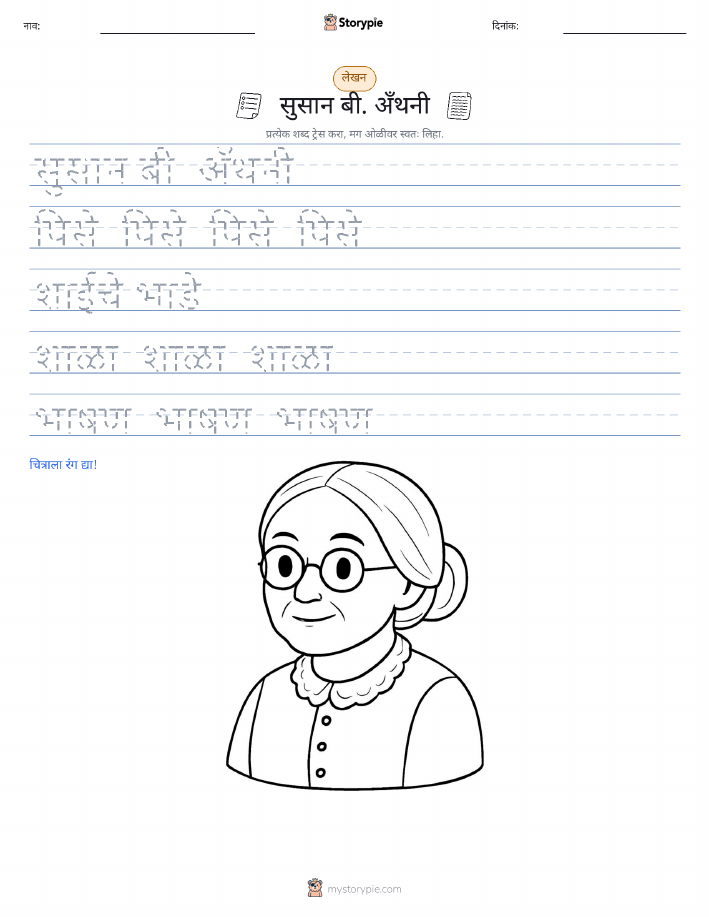 नाव:
Storypie
दिनांक:
लेखन
सुसान बी. अँथनी
प्रत्येक शब्द ट्रेस करा, मग ओळीवर स्वतः लिहा.
सुसान बी अँथनी
पिसे पिसे पिसे पिसे
शाईचे भाडे
शाळा शाळा शाळा
भाषण भाषण भाषण
चित्राला रंग द्या!
mystorypie.com